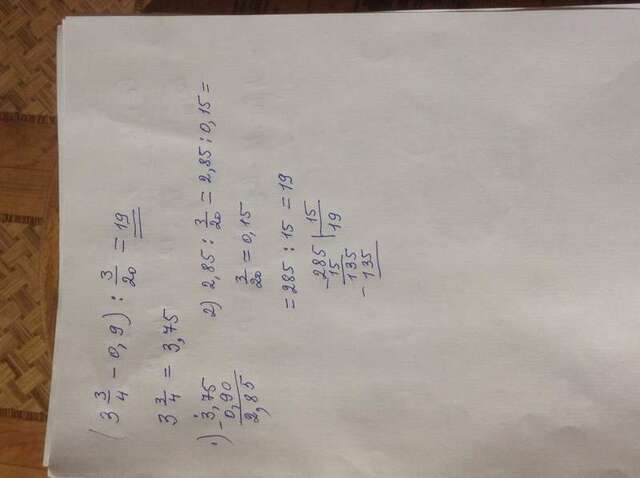 (3 3/4 - 0,9) : 3/20 = 19
3 3/4 = 3,75
1) 3,75
- 0,90
2,85
2) 2,85 : 3/20 = 2,85 : 0,15 =
3/20 = 0,15
= 285 : 15 = 19
- 285 | 15
15 19
135
- 135